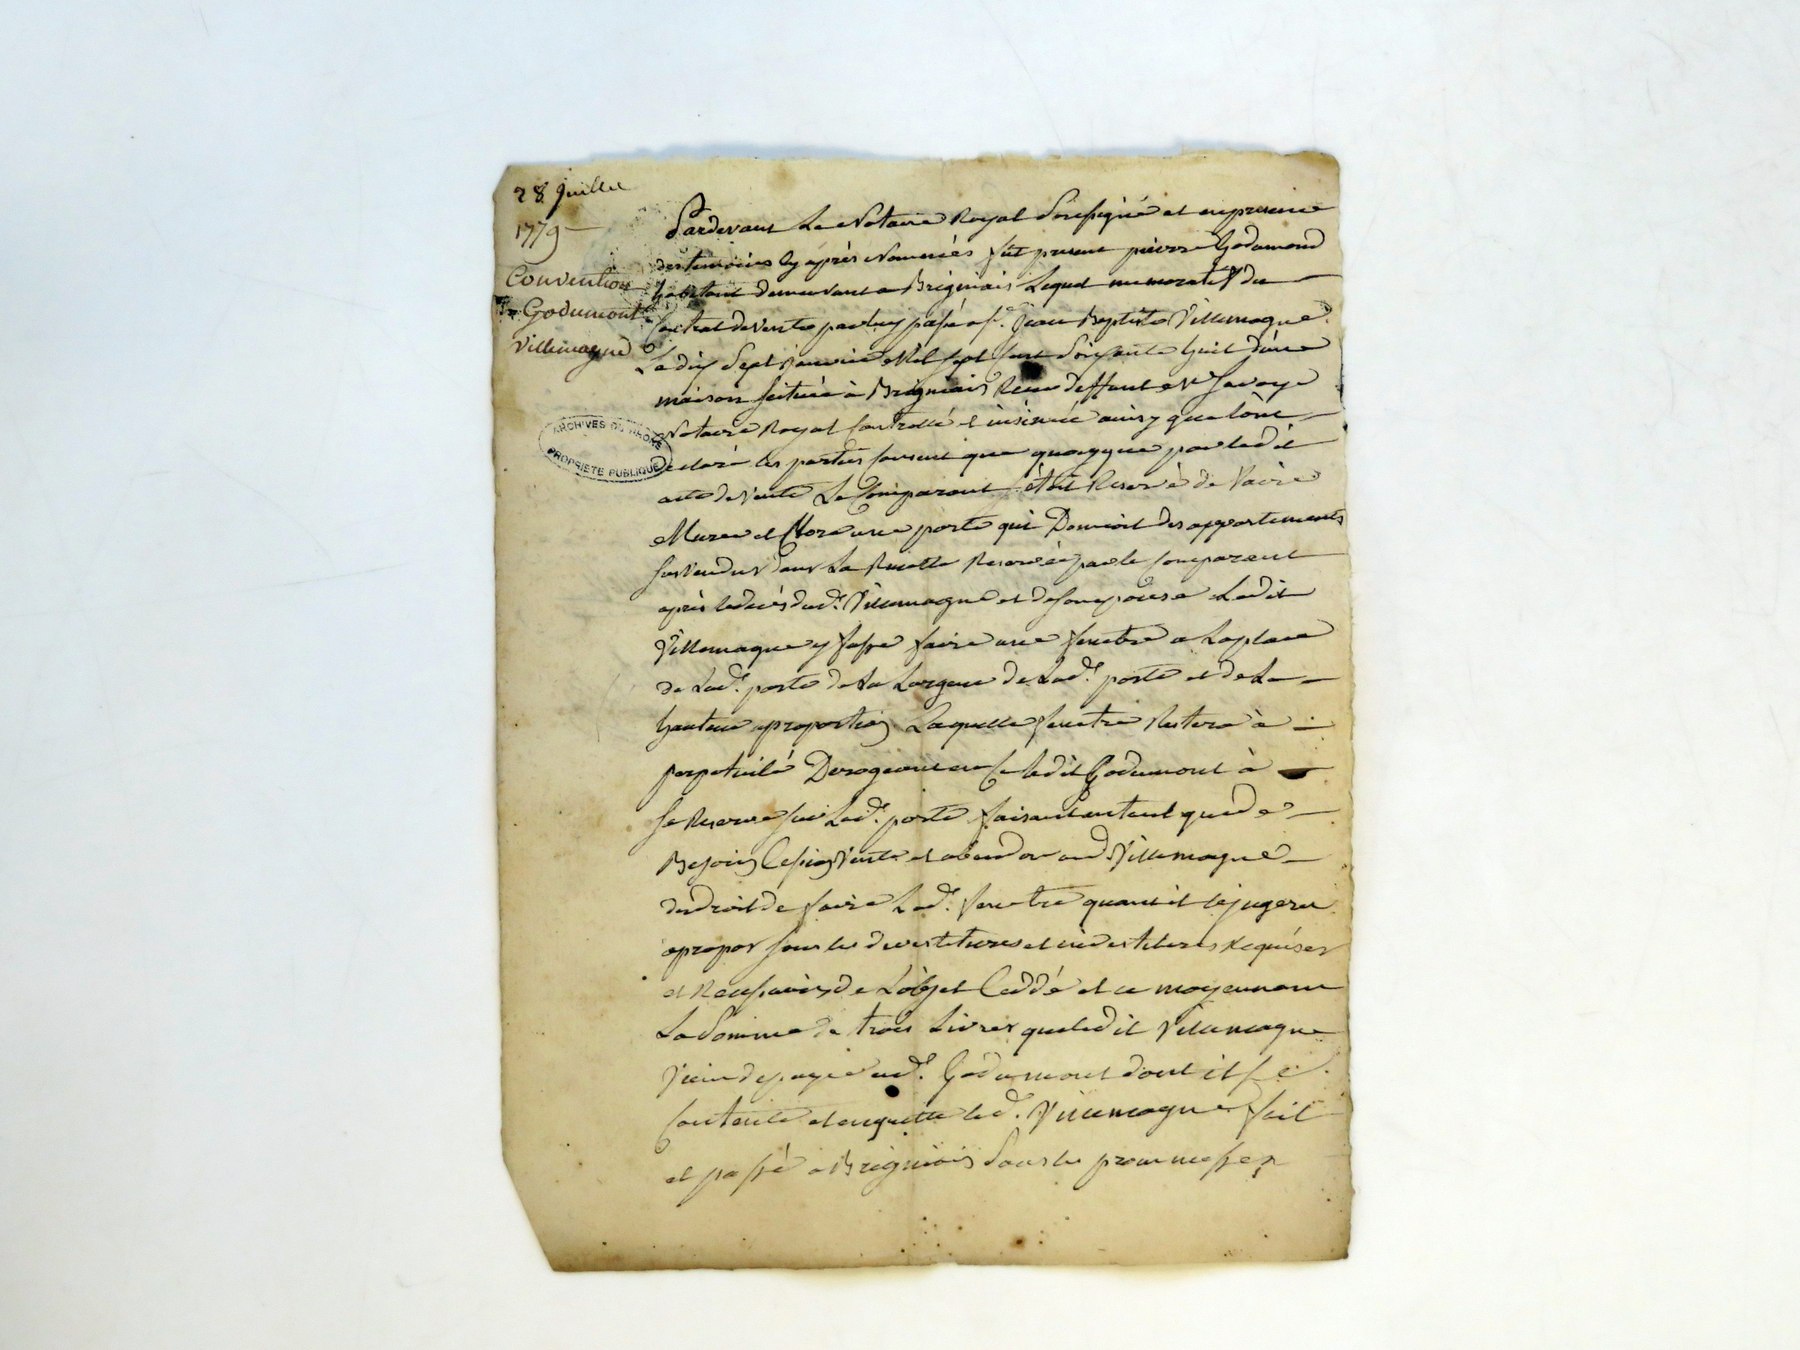 28 Juillet
1779
Convention
Godumont
Villemagne
ARCHIVES DU RHÔNE
PROPRIETE PUBLIQUE
Pardevant Le Notaire Royal Soussigné et en presence
des temoins Cy après Nommés fut present pierre Godumond
habitant demeurant a Brignais Lequel memoratif du
Contrat de Vente par luy passé a Sr. Jean Baptiste Villemagne
Le dix Sept Janvier Mil Sept Cent Soixante huit d'une
maison scituée à Brignais Reçu deffunt Me Savoye
Notaire Royal Controllé et insinué ainsy que l'ont
declaré les parties sousuit que quoyque par ledit
acte de Vente Le Comparant s'étoit Reservé de Faire
Murer et Clore une porte qui Donnoit des appartements
sus Vendus dans La Ruette Reservée par le Comparant
après le decès dud. Villemagne et de son epouse Ledit
Villemagne y fasse faire une fenetre a La place
de Lad. porte de La Largeur de Lad. porte et de La
hauteur a proportion Laquelle fenetre Restera à
perpetuité Derogeant en Ce ledit Godumont à
Se Reserve sur Lad. porte faisant en tant que de
Besoin Cession Vente et abandon aud. Villemagne
du droit de Faire Lad. fenetre quand il le jugera
a propos sous les devestitures et investitures Requises
et Necessaires de L'objet Ceddé et ce moyennant
La Somme de trois Livres que ledit Villemagne
Vient de payer aud. Godumont dont il se
Contente et en quitte led. Villemagne fait
et passé a Brignais Sous les prommesses